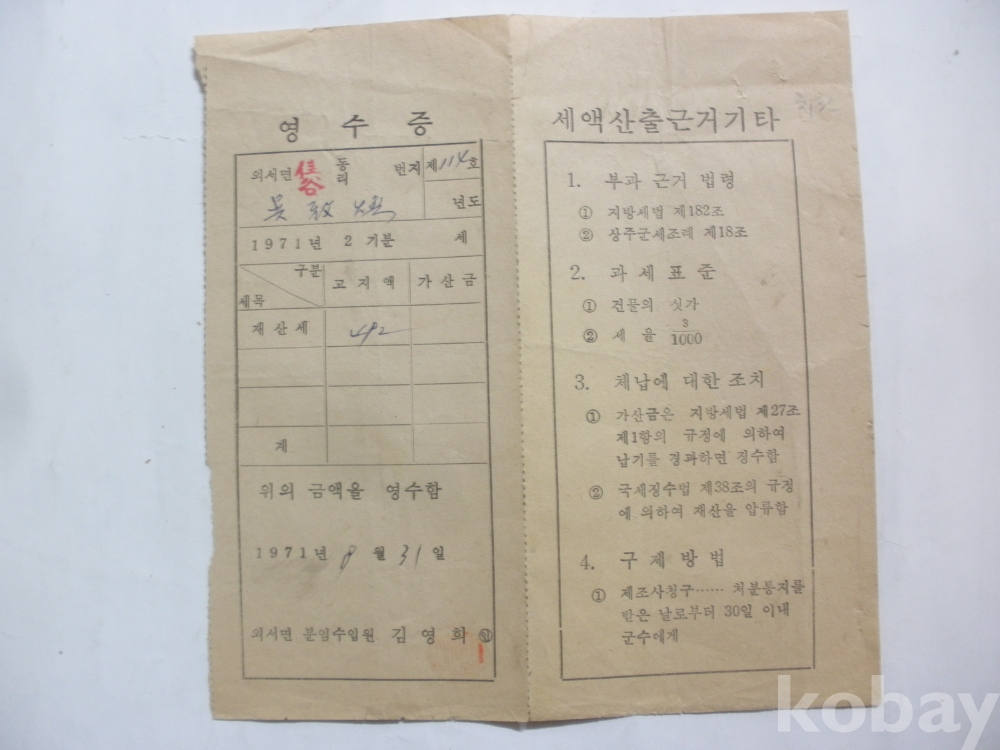 영 수 증
외서면 동리 번지 제114호
년도
1971년 2 기분 세
구분
세목
고 지 액 가 산 금
재 산 세
계
위의 금액을 영수함
1971년 8 월 31 일
외서면 분임수입원 김 영 희 ㊞
세액산출근거기타
1. 부과 근거 법령
① 지방세법 제182조
② 상주군세조례 제18조
2. 과 세 표 준
① 건물의 싯가
② 세 율 3/1000
3. 체납에 대한 조치
① 가산금은 지방세법 제27조
제1항의 규정에 의하여
납기를 경과하면 징수함
② 국세징수법 제38조의 규정
에 의하여 재산을 압류함
4. 구 제 방 법
① 제조사청구…… 처분통지를
받은 날로부터 30일 이내
군수에게
kobay